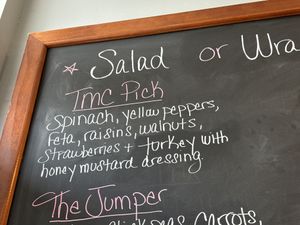 Salad or Wra
TMC Pick
Spinach, yellow peppers,
feta, raisins, walnuts,
strawberries + turkey with
honey mustard dressing.
The Jumper
chickpeas, carrots,